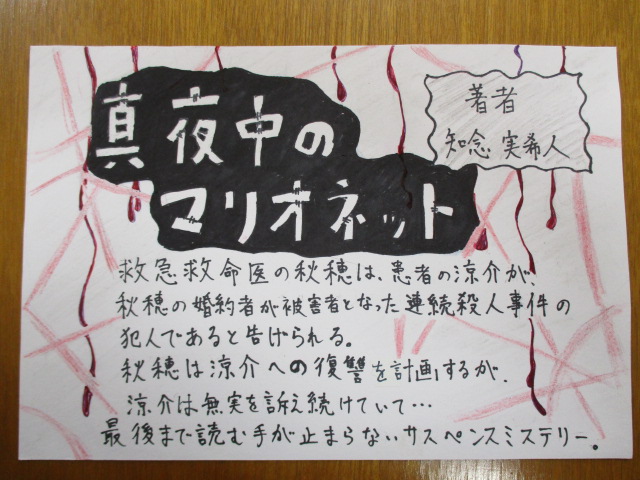 真夜中の
マリオネット
著者
知念 実希人
救急救命医の秋穂は、患者の涼介が、
秋穂の婚約者が被害者となった連続殺人事件の
犯人であると告げられる。
秋穂は涼介への復讐を計画するが、
涼介は無実を訴え続けていて…
最後まで読む手が止まらないサスペンスミステリー。